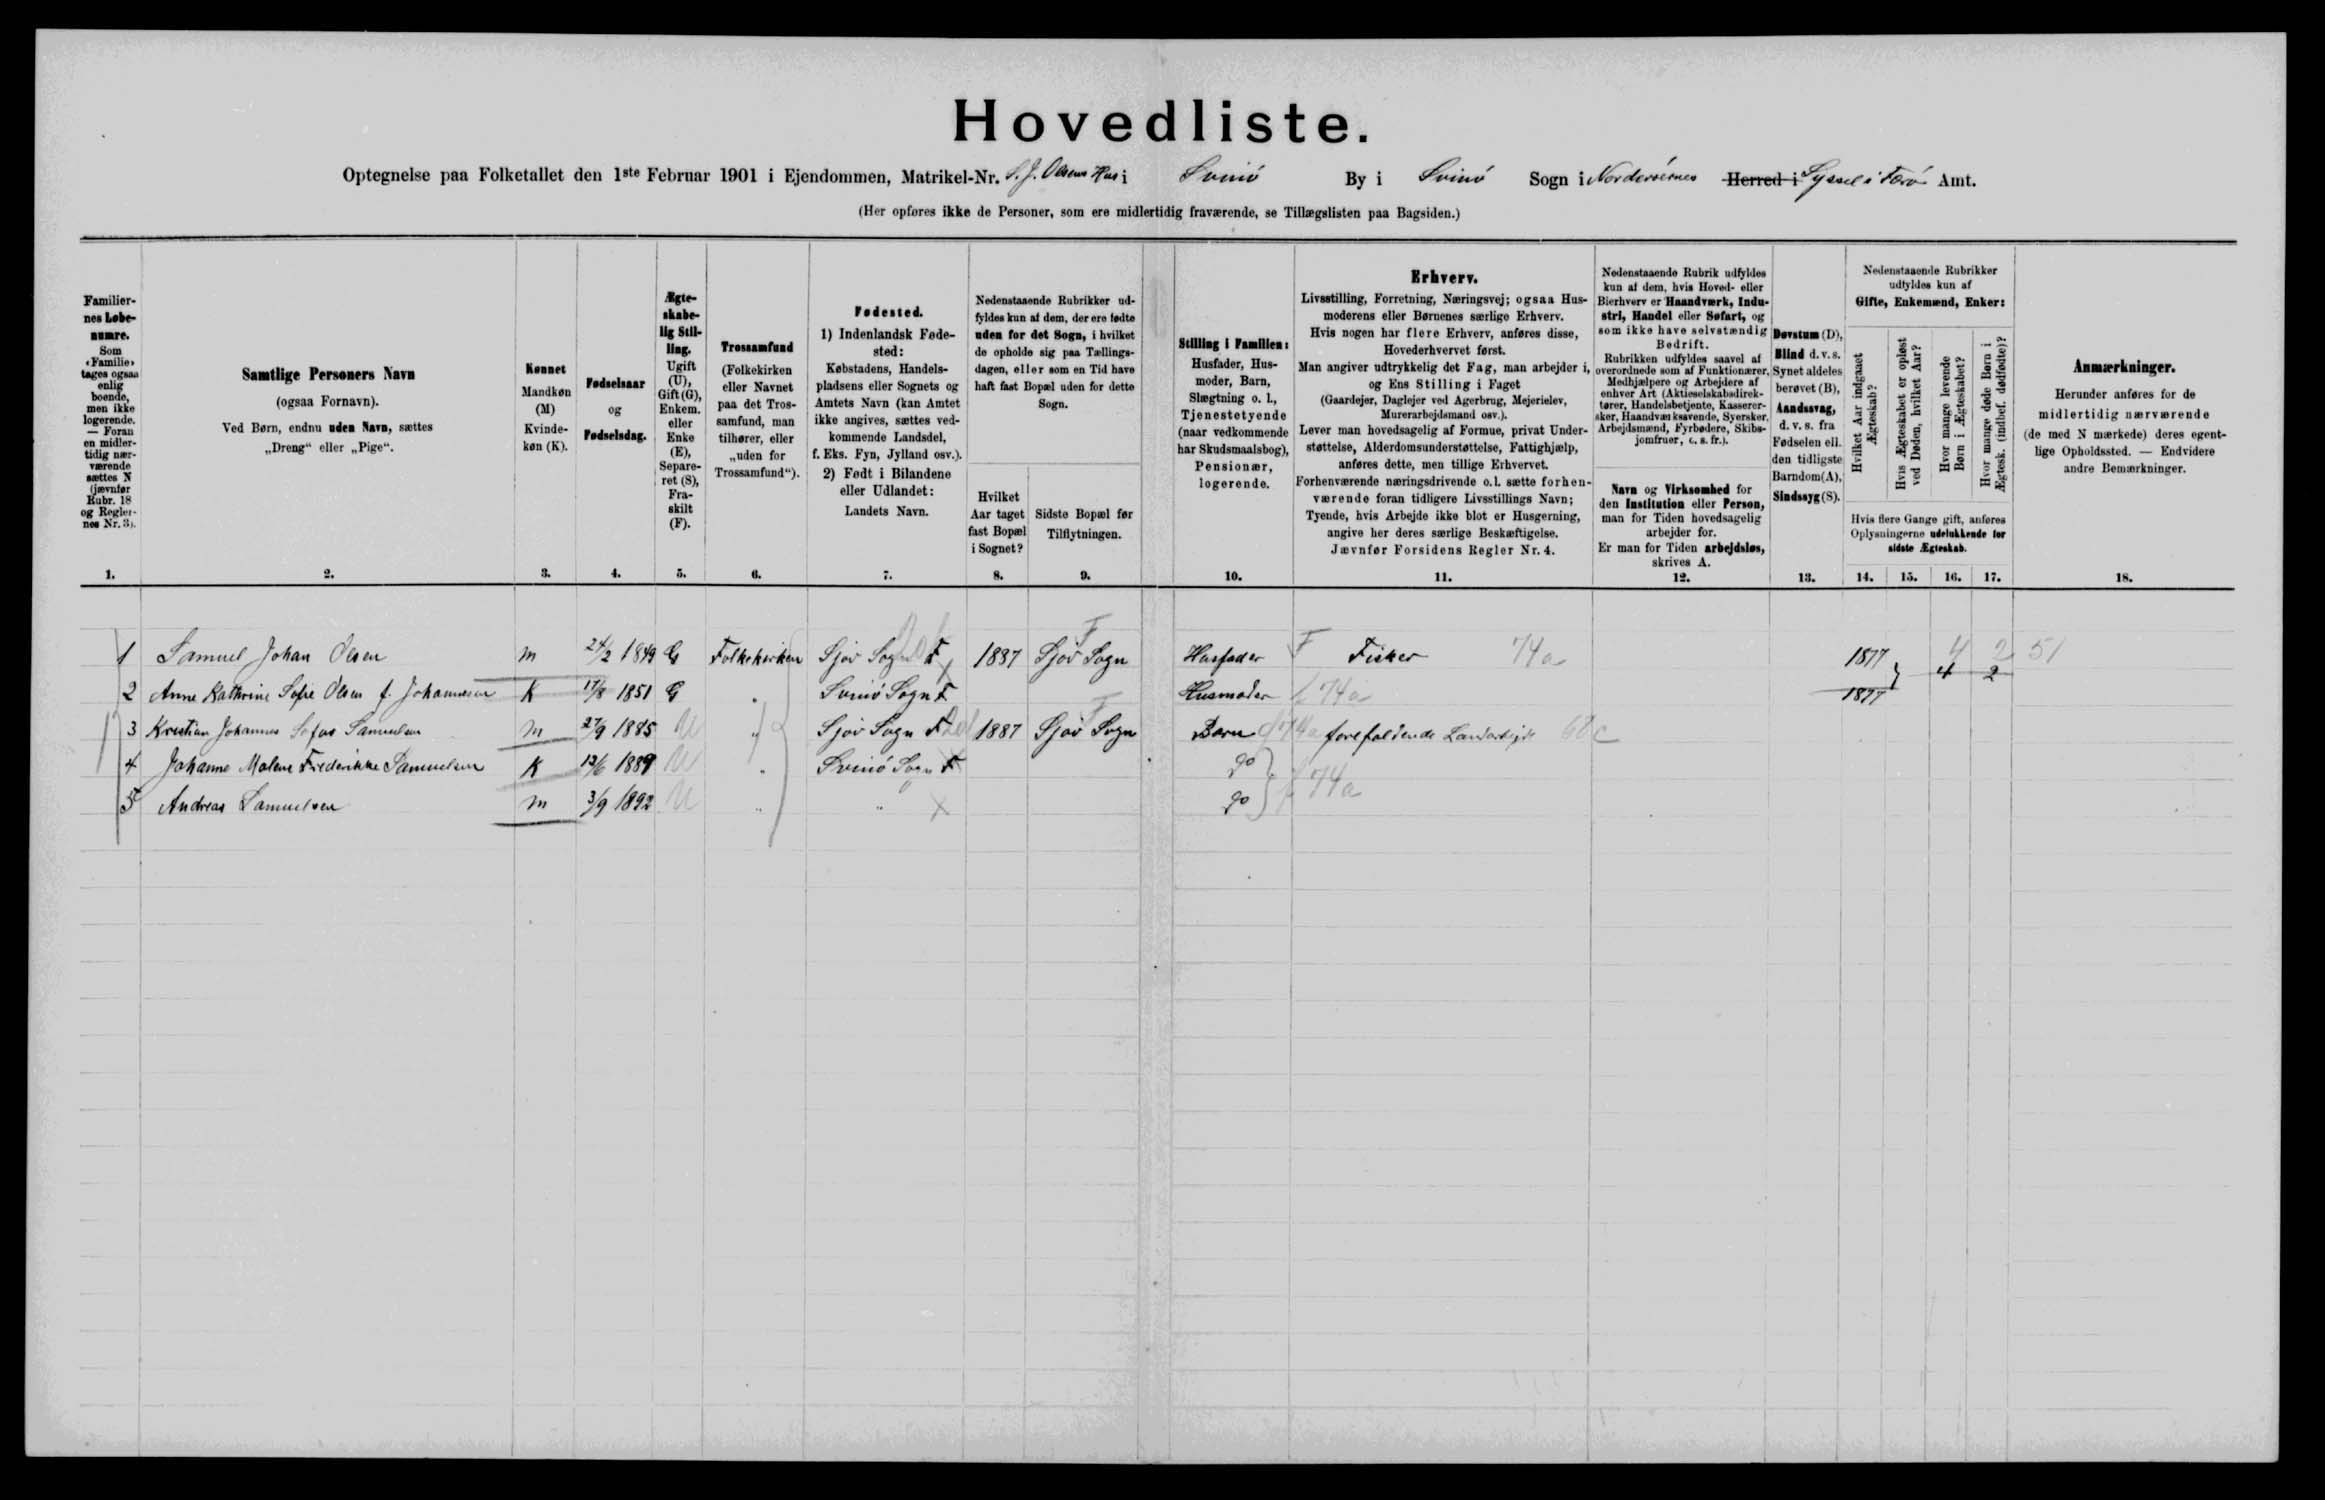 Hovedliste.
Optegnelse paa Folketallet den 1ste Februar 1901 i Ejendommen, Matrikel-Nr. S. J. Olsens Hus i Svinö By i Svinö Sogn i Norderøernes Herred i Syssel i Færö Amt.
(Her opføres ikke de Personer, som ere midlertidig fraværende, se Tillægslisten paa Bagsiden.)
Familier-
nes Løbe-
numre.
Som
«Familie»
tages ogsaa
enlig
boende,
men ikke
logerende.
— Foran
en midler-
tidig nær-
værende
sættes N
(jævnfør
Rubr. 18
og Regler-
nes Nr. 3).
1.
Samtlige Personers Navn
(ogsaa Fornavn).
Ved Børn, endnu uden Navn, sættes
„Dreng“ eller „Pige“.
2.
Kønnet
Mandkøn
(M)
Kvinde-
køn (K).
3.
Fødselsaar
og
Fødselsdag.
4.
Ægte-
skabe-
lig Stil-
ling.
Ugift
(U),
Gift (G),
Enkem.
eller
Enke
(E),
Separe-
ret (S),
Fra-
skilt
(F).
5.
Trossamfund
(Folkekirken
eller Navnet
paa det Tros-
samfund, man
tilhører, eller
„uden for
Trossamfund“).
6.
Fødested.
1) Indenlandsk Føde-
sted:
Købstadens, Handels-
pladsens eller Sognets og
Amtets Navn (kan Amtet
ikke angives, sættes ved-
kommende Landsdel,
f. Eks. Fyn, Jylland osv.).
2) Født i Bilandene
eller Udlandet:
Landets Navn.
7.
Nedenstaaende Rubrikker ud-
fyldes kun af dem, der ere fødte
uden for det Sogn, i hvilket
de opholde sig paa Tællings-
dagen, eller som en Tid have
haft fast Bopæl uden for dette
Sogn.
Hvilket
Aar taget
fast Bopæl
i Sognet?
8.
Sidste Bopæl før
Tilflytningen.
9.
Stilling i Familien:
Husfader, Hus-
moder, Barn,
Slægtning o. l.,
Tjenestetyende
(naar vedkommende
har Skudsmaalsbog),
Pensionær,
logerende.
10.
Erhverv.
Livsstilling, Forretning, Næringsvej; ogsaa Hus-
moderens eller Børnenes særlige Erhverv.
Hvis nogen har flere Erhverv, anføres disse,
Hovederhvervet først.
Man angiver udtrykkelig det Fag, man arbejder i,
og Ens Stilling i Faget
(Gaardejer, Daglejer ved Agerbrug, Mejerielev,
Murerarbejdsmand osv.).
Lever man hovedsagelig af Formue, privat Under-
støttelse, Alderdomsunderstøttelse, Fattighjælp,
anføres dette, men tillige Erhvervet.
Forhenværende næringsdrivende o. l. sætte forhen-
værende foran tidligere Livsstillings Navn;
Tyende, hvis Arbejde ikke blot er Husgerning,
angive her deres særlige Beskæftigelse.
Jævnfør Forsidens Regler Nr. 4.
11.
Nedenstaaende Rubrik udfyldes
kun af dem, hvis Hoved- eller
Bierhverv er Haandværk, Indu-
stri, Handel eller Søfart, og
som ikke have selvstændig
Bedrift.
Rubrikken udfyldes saavel af
overordnede som af Funktionærer,
Medhjælpere og Arbejdere af
enhver Art (Aktieselskabsdirek-
tører, Handelsbetjente, Kasserer-
sker, Haandværksvende, Syersker,
Arbejdsmænd, Fyrbødere, Skibs-
jomfruer, o. s. fr.).
Navn og Virksomhed for
den Institution eller Person,
man for Tiden hovedsagelig
arbejder for.
Er man for Tiden arbejdsløs,
skrives A.
12.
Døvstum (D),
Blind d. v. s.
Synet aldeles
berøvet (B),
Aandssvag,
d. v. s. fra
Fødselen ell.
den tidligste
Barndom (A),
Sindssyg (S).
13.
Nedenstaaende Rubrikker
udfyldes kun af
Gifte, Enkemænd, Enker:
Hvilket Aar indgaaet
Ægteskab?
Hvis Ægteskabet er opløst
ved Døden, hvilket Aar?
Hvor mange levende
Børn i Ægteskabet?
Hvor mange døde Børn i
Ægtesk. (indbef. dødfødte)?
Hvis flere Gange gift, anføres
Oplysningerne udelukkende for
sidste Ægteskab.
14. 15. 16. 17.
Anmærkninger.
Herunder anføres for de
midlertidig nærværende
(de med N mærkede) deres egent-
lige Opholdssted. — Endvidere
andre Bemærkninger.
18.
1 Samuel Johan Olsen m 24/2 1849 G Folkekirken Sjov Sogn F 1887 Sjov Sogn F Husfader F Fisker 74a 1877 4 2 51
2 Anne Kathrine Sofie Olsen f. Johannesen K 17/8 1851 G " Svinö Sogn F Husmoder f 74a 1877 4 2
3 Kristian Johannes Sofus Samuelsen m 27/9 1885 U " Sjov Sogn F 1887 Sjov Sogn F Barn forefaldende Landarbejde 68c
4 Johanne Malene Frederikke Samuelsen K 13/6 1889 U " Svinö Sogn F do f 74a
5 Andreas Samuelsen m 3/9 1892 U " " X do